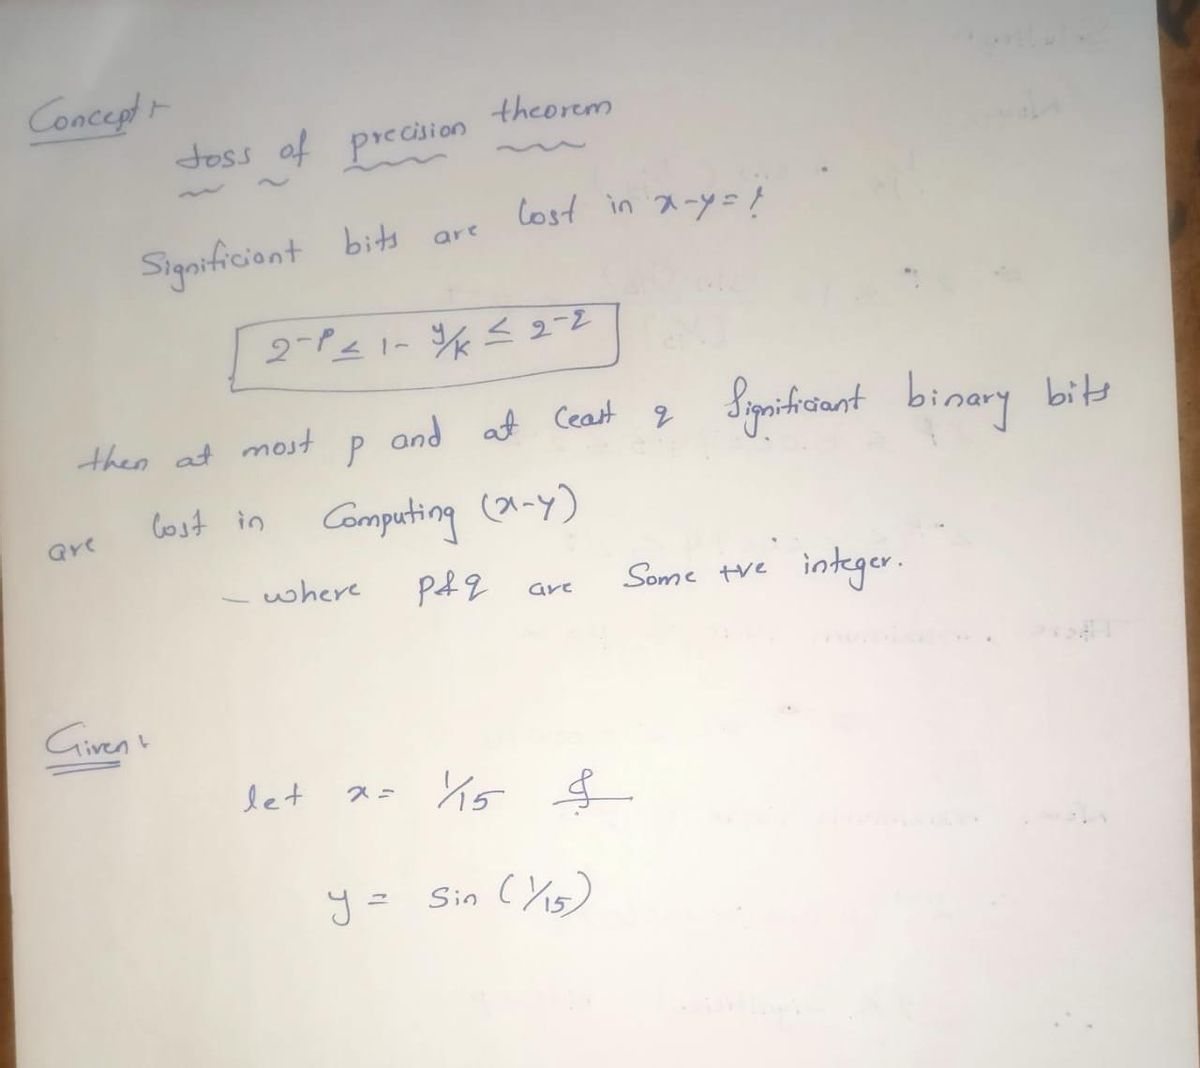 Concept :-
Loss of precision theorem
Significiant bits are lost in x-y = !
2^-P ≤ 1 - y/x ≤ 2^-q
then at most p and at least q Significiant binary bits
are lost in Computing (x-y)
- where p & q are Some +ve integer.
Given :
let x = 1/15 &
y = Sin (1/15)